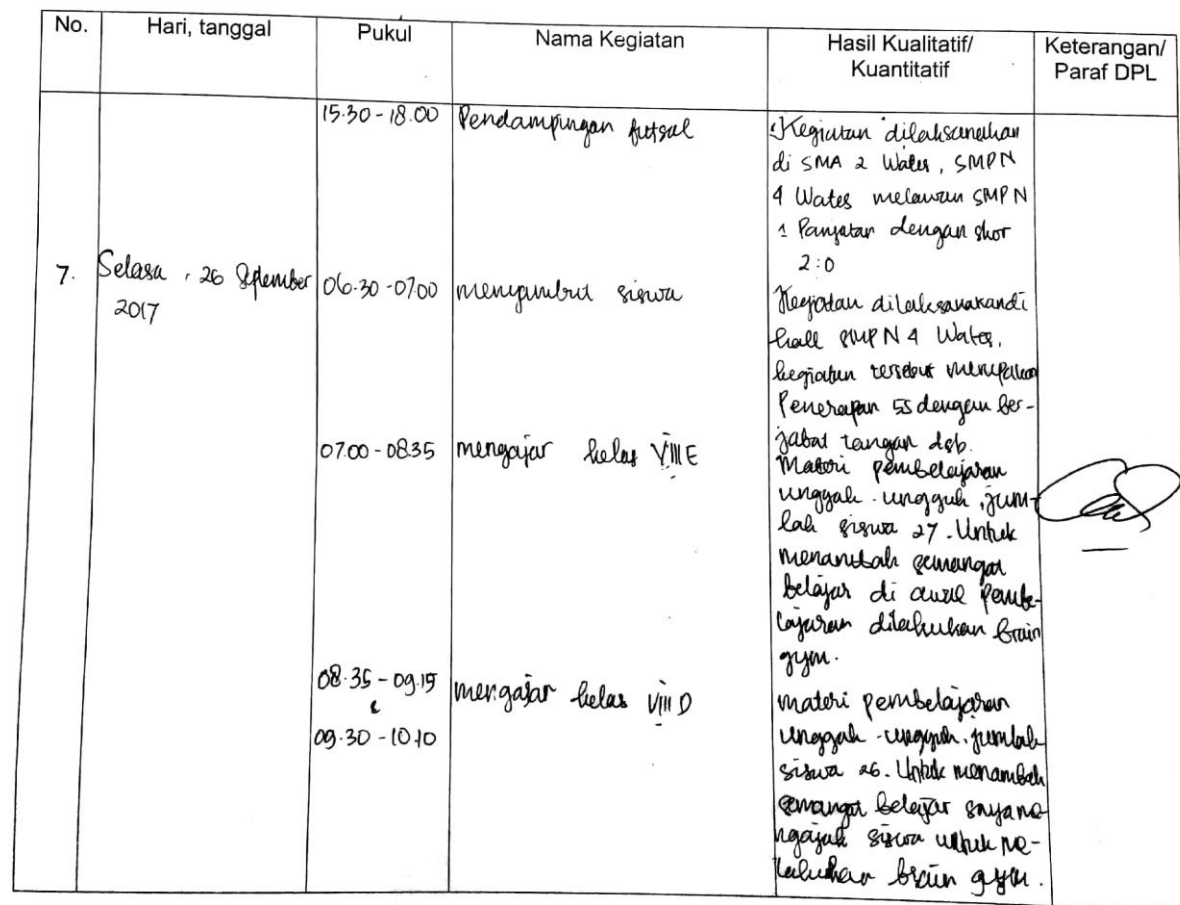 No. Hari, tanggal Pukul Nama Kegiatan Hasil Kualitatif/ Kuantitatif Keterangan/ Paraf DPL
15.30 - 18.00 Pendampingan futsal Kegiatan dilaksanakan
di SMA 2 Wates, SMPN
4 Wates melawan SMPN
1 Panjatan dengan skor
2:0
7. Selasa, 26 September 06.30 - 07.00 menyambut siswa Kegiatan dilaksanakan di
2017
hall SMPN 4 Wates,
kegiatan tersebut merupakan
Penerapan 5S dengan ber-
jabat tangan dsb.
07.00 - 08.35 mengajar kelas VIII E Materi pembelajaran
unggah - ungguh, jum-
lah siswa 27. Untuk
menambah semangat
belajar di awal pembe-
lajaran dilakukan brain
gym.
08.35 - 09.15 mengajar kelas VIII D materi pembelajaran
&
09.30 - 10.10
unggah - ungguh, jumlah
siswa 26. Untuk menambah
semangat belajar saya me
ngajak siswa untuk me-
lakukan brain gym.